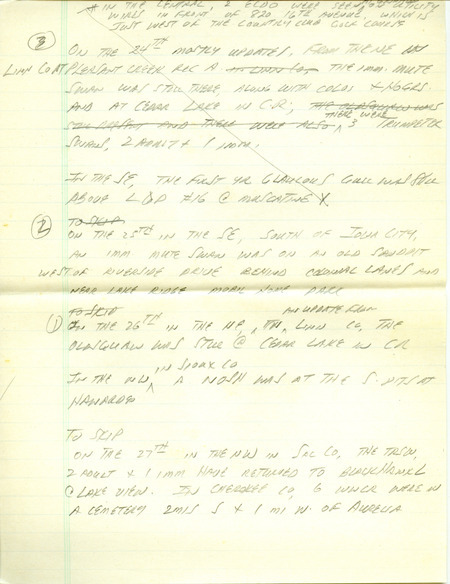 * IN THE CENTRAL, 2 ECDO WERE SEEN ON UTILITY
WIRES IN FRONT OF 820 16TH AVENUE WHICH IS
JUST WEST OF THE COUNTRY CLUB GOLF COURSE
③ ON THE 24TH MOSTLY UPDATES, FROM THE NE IN
LINN CO AT PLEASANT CREEK REC A IN LINN CO, THE IMM. MUTE
SWAN WAS STILL THERE, ALONG WITH COLOS + HOGRS.
AND AT CEDAR LAKE IN C.R., THE OLDSQUAW WAS
STILL PRESENT AND THERE WERE ALSO THERE WERE 3 TRUMPETER
SWANS, 2 ADULT + 1 IMM.
IN THE SE, THE FIRST YR GLAUCOUS GULL WAS STILL
ABOVE L&D #16 @ MUSCATINE
② TO SKIP
ON THE 25TH IN THE SE, SOUTH OF IOWA CITY,
AN IMM MUTE SWAN WAS ON AN OLD SANDPIT
WEST OF RIVERSIDE DRIVE BEHIND COLONIAL LANES AND
NEAR LAKE RIDGE MOBIL HOME PARK
TO SKIP AN UPDATE FROM
① IN THE 26TH IN THE NE, LINN CO, THE
OLDSQUAW WAS STILL @ CEDAR LAKE IN CR
IN THE NW, IN SIOUX CO A NOSH WAS AT THE S. PITS AT
HAWARDEN
TO SKIP
ON THE 27TH IN THE NW IN SAC CO, THE TRSW,
2 ADULT + 1 IMM HAVE RETURNED TO BLACKHAWK L
@ LAKE VIEW. IN CHEROKEE CO, 6 WWCR WERE IN
A CEMETERY 2 MIS S + 1 MI W. OF AURELIA